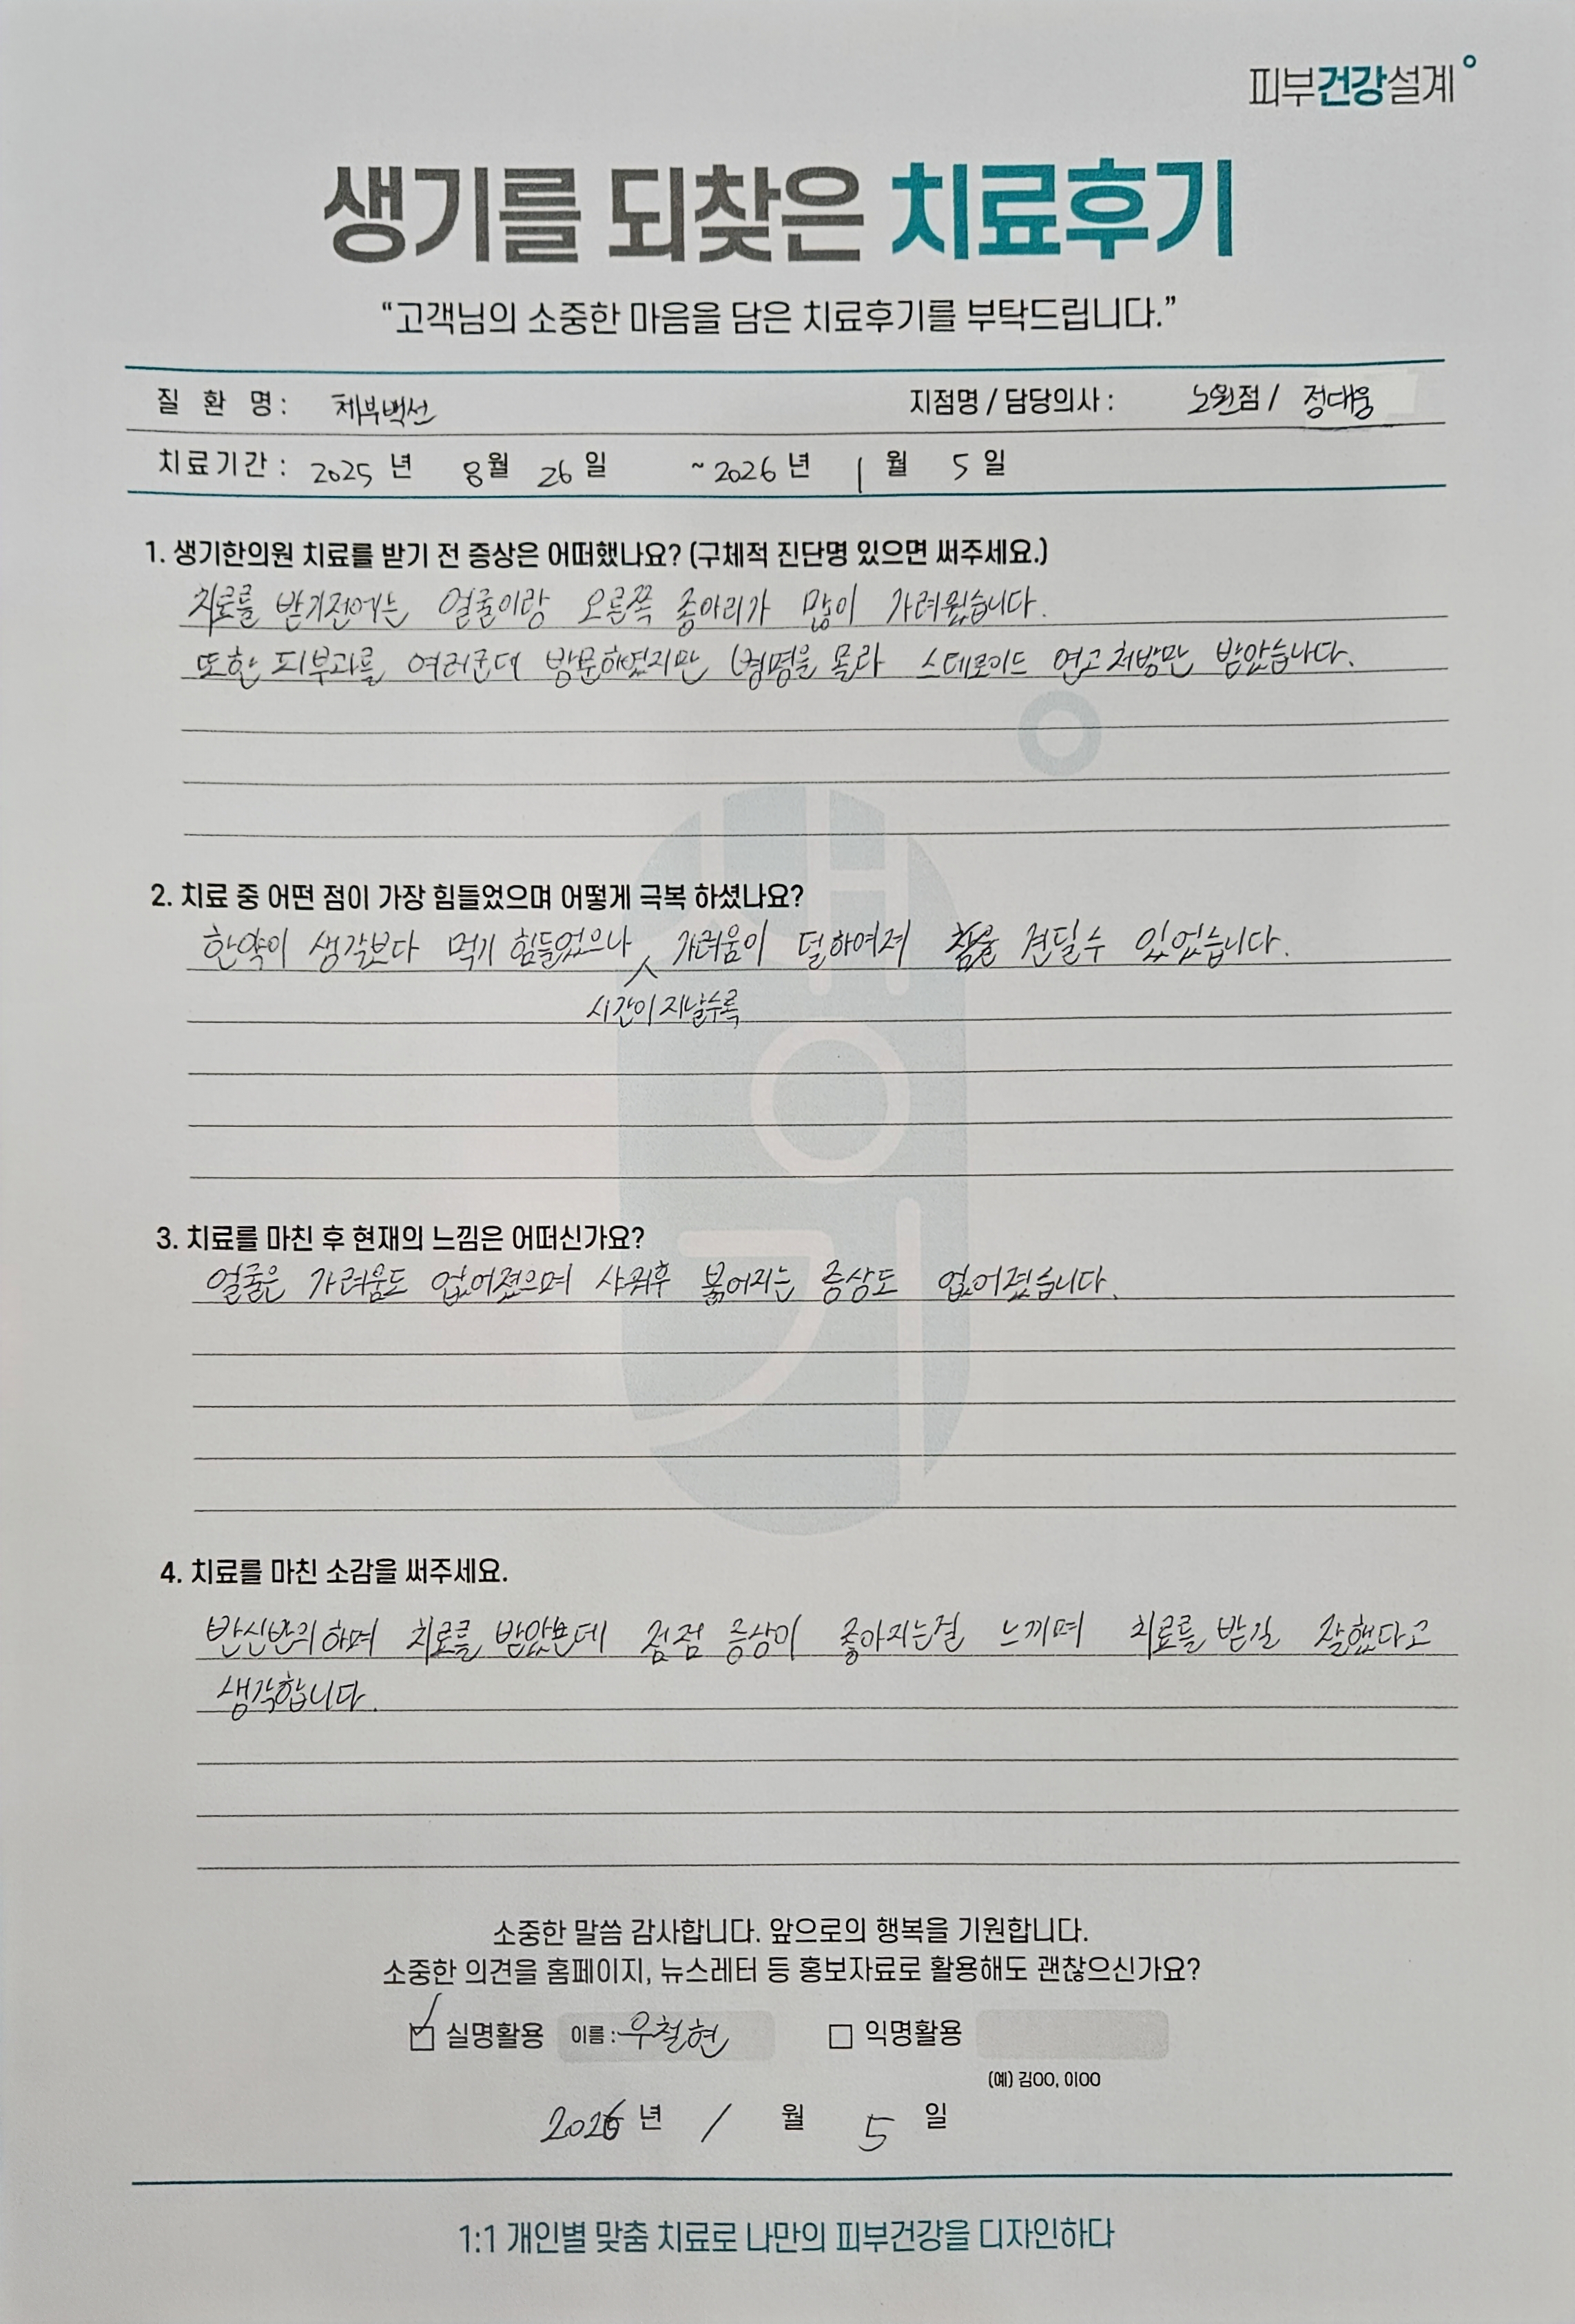 피부건강설계
생기를 되찾은 치료후기
“고객님의 소중한 마음을 담은 치료후기를 부탁드립니다.”
질 환 명 : 체부백선 지점명 / 담당의사 : 노원점 / 정대웅
치료기간 : 2025 년 8월 26 일 ~ 2026 년 1 월 5 일
1. 생기한의원 치료를 받기 전 증상은 어떠했나요? (구체적 진단명 있으면 써주세요.)
치료를 받기전에는 얼굴이랑 오른쪽 종아리가 많이 가려웠습니다.
또한 피부과를 여러군데 방문하였지만 병명을 몰라 스테로이드 연고 처방만 받았습니다.
2. 치료 중 어떤 점이 가장 힘들었으며 어떻게 극복 하셨나요?
한약이 생각보다 먹기 힘들었으나 가려움이 덜하여져 견딜수 있었습니다.
시간이 지날수록
3. 치료를 마친 후 현재의 느낌은 어떠신가요?
얼굴은 가려움도 없어졌으며 샤워후 붉어지는 증상도 없어졌습니다.
4. 치료를 마친 소감을 써주세요.
반신반의하며 치료를 받았는데 점점 증상이 좋아지는걸 느끼며 치료를 받길 잘했다고
생각합니다.
소중한 말씀 감사합니다. 앞으로의 행복을 기원합니다.
소중한 의견을 홈페이지, 뉴스레터 등 홍보자료로 활용해도 괜찮으신가요?
실명활용 이름 : 우철현 익명활용
(예) 김OO, 이OO
2026 년 1 월 5 일
1:1 개인별 맞춤 치료로 나만의 피부건강을 디자인하다